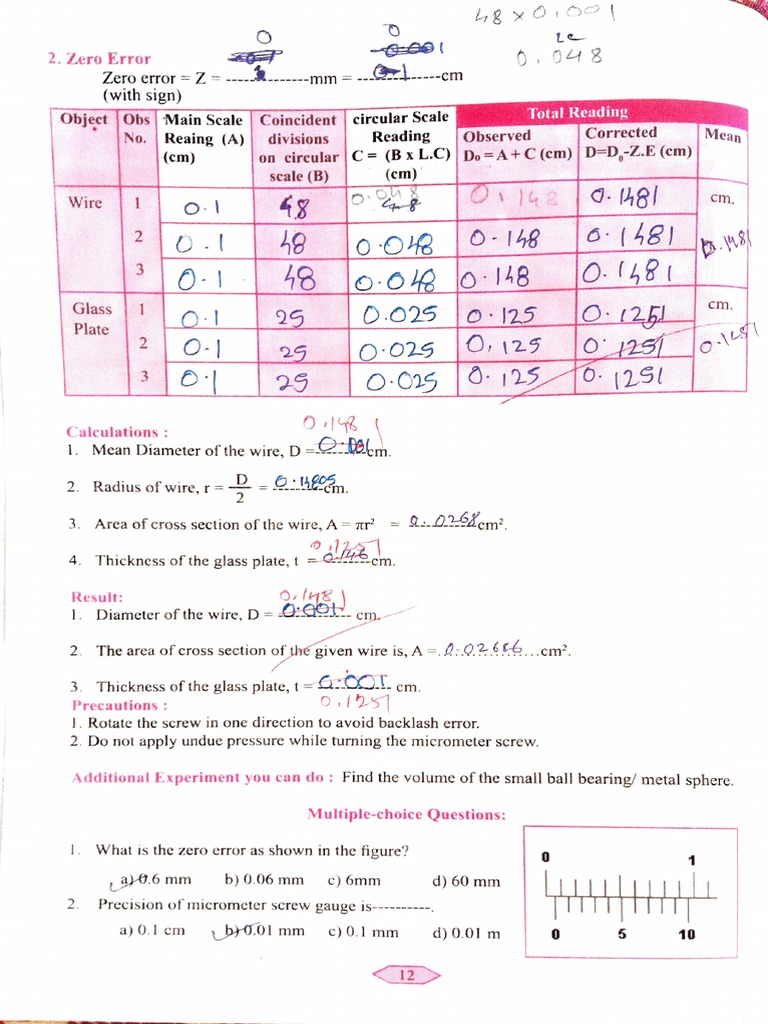 48 x 0.001
0.048
0
0
0.001
2. Zero Error
Zero error = Z = ----------------mm = ----------------cm
(with sign)
Object Obs No. Main Scale Reaing (A) (cm) Coincident divisions on circular scale (B) circular Scale Reading C = (B x L.C) (cm) Total Reading
Observed D₀ = A + C (cm) Corrected D=D₀-Z.E (cm) Mean
Wire 1 0.1 48 0.048 0.148 0.1481 cm.
2 0.1 48 0.048 0.148 0.1481 0.1481
3 0.1 48 0.048 0.148 0.1481
Glass Plate 1 0.1 25 0.025 0.125 0.1251 cm.
2 0.1 25 0.025 0.125 0.1251 0.1251
3 0.1 25 0.025 0.125 0.1251
Calculations :
0.1481
1. Mean Diameter of the wire, D = 0.001 cm.
2. Radius of wire, r = D/2 = 0.14805 cm.
3. Area of cross section of the wire, A = πr² = 0.0268 cm².
0.1251
4. Thickness of the glass plate, t = 0.148 cm.
Result:
0.1481
1. Diameter of the wire, D = 0.001 cm.
2. The area of cross section of the given wire is, A = 0.02686 cm².
3. Thickness of the glass plate, t = 0.001 cm.
0.1251
Precautions :
1. Rotate the screw in one direction to avoid backlash error.
2. Do not apply undue pressure while turning the micrometer screw.
Additional Experiment you can do : Find the volume of the small ball bearing/ metal sphere.
Multiple-choice Questions:
1. What is the zero error as shown in the figure?
a) 0.6 mm b) 0.06 mm c) 6mm d) 60 mm
2. Precision of micrometer screw gauge is----------.
a) 0.1 cm b) 0.01 mm c) 0.1 mm d) 0.01 m
0 1
0 5 10
12